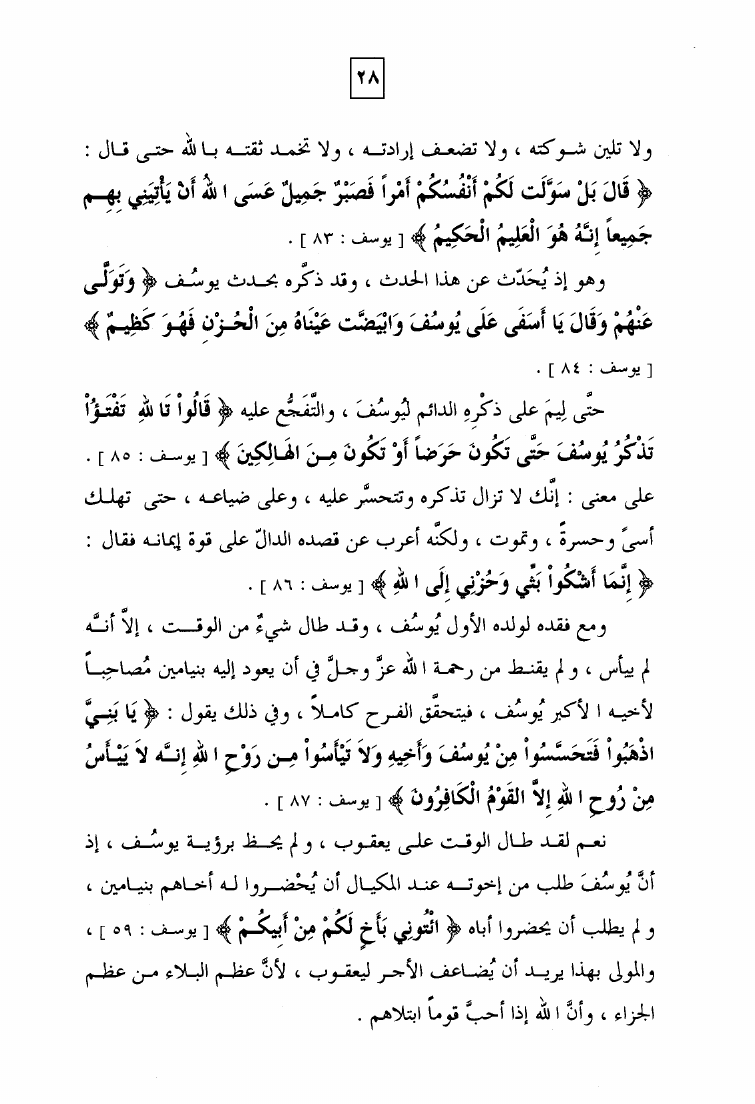 ٢٨
ولا تلين شوكته ، ولا تضعف إرادته ، ولا تخمد ثقته بالله حتى قال :
﴿ قَالَ بَلْ سَوَّلَت لَكُمْ أَنْفُسُكُمْ أَمْراً فَصَبْرٌ جَمِيلٌ عَسَى اللهُ أَنْ يَأْتِيَنِي بِهِم
جَمِيعاً إِنَّهُ هُوَ الْعَلِيمُ الْحَكِيمُ ﴾ [ يوسف : ٨٣ ] .
وهو إذ يُحَدّث عن هذا الحدث ، وقد ذكَّره بحدث يوسُف ﴿ وَتَوَلَّى
عَنْهُمْ وَقَالَ يَا أَسَفَى عَلَى يُوسُفَ وَابْيَضَّت عَيْنَاهُ مِنَ الْحُزْنِ فَهُوَ كَظِيمٌ ﴾
[ يوسف : ٨٤ ] .
حتَّى لِيمَ على ذكْرِهِ الدائم ليُوسُفَ ، والتَّفجُّع عليه ﴿ قَالُواْ تَاللهِ تَفْتَؤُاْ
تَذْكُرُ يُوسُفَ حَتَّى تَكُونَ حَرَضاً أَوْ تَكُونَ مِنَ الهَالِكِينَ ﴾ [ يوسف : ٨٥ ] .
على معنى : إنَّك لا تزال تذكره وتتحسَّر عليه ، وعلى ضياعه ، حتى تهلك
أسىً وحسرةً ، وتموت ، ولكنَّه أعرب عن قصده الدالّ على قوة إيمانه فقال :
﴿ إِنَّمَا أَشْكُواْ بَثِّي وَحُزْنِي إِلَى اللهِ ﴾ [ يوسف : ٨٦ ] .
ومع فقده لولده الأول يُوسُف ، وقد طال شيءٌ من الوقت ، إلاَّ أنَّه
لم ييأس ، ولم يقنط من رحمة الله عزَّ وجلَّ في أن يعود إليه بنيامين مُصاحِباً
لأخيه الأكبر يُوسُف ، فيتحقَّق الفرح كاملاً ، وفي ذلك يقول : ﴿ يَا بَنِيَّ
اذْهَبُواْ فَتَحَسَّسُواْ مِنْ يُوسُفَ وَأَخِيهِ وَلاَ تَيْأَسُواْ مِن رَوْحِ اللهِ إِنَّه لاَ يَيْأَسُ
مِنْ رُوحِ اللهِ إِلاَّ القَوْمُ الْكَافِرُونَ ﴾ [ يوسف : ٨٧ ] .
نعم لقد طال الوقت على يعقوب ، ولم يحظ برؤية يوسُف ، إذ
أنَّ يُوسُفَ طلب من إخوته عند المكيال أن يُحْضروا له أخاهم بنيامين ،
ولم يطلب أن يحضروا أباه ﴿ ائْتُونِي بَأَخٍ لَكُمْ مِنْ أَبِيكُمْ ﴾ [ يوسف : ٥٩ ] ،
والمولى بهذا يريد أن يُضاعف الأجر ليعقوب ، لأنَّ عظم البلاء من عظم
الجزاء ، وأنَّ الله إذا أحبَّ قوماً ابتلاهم .